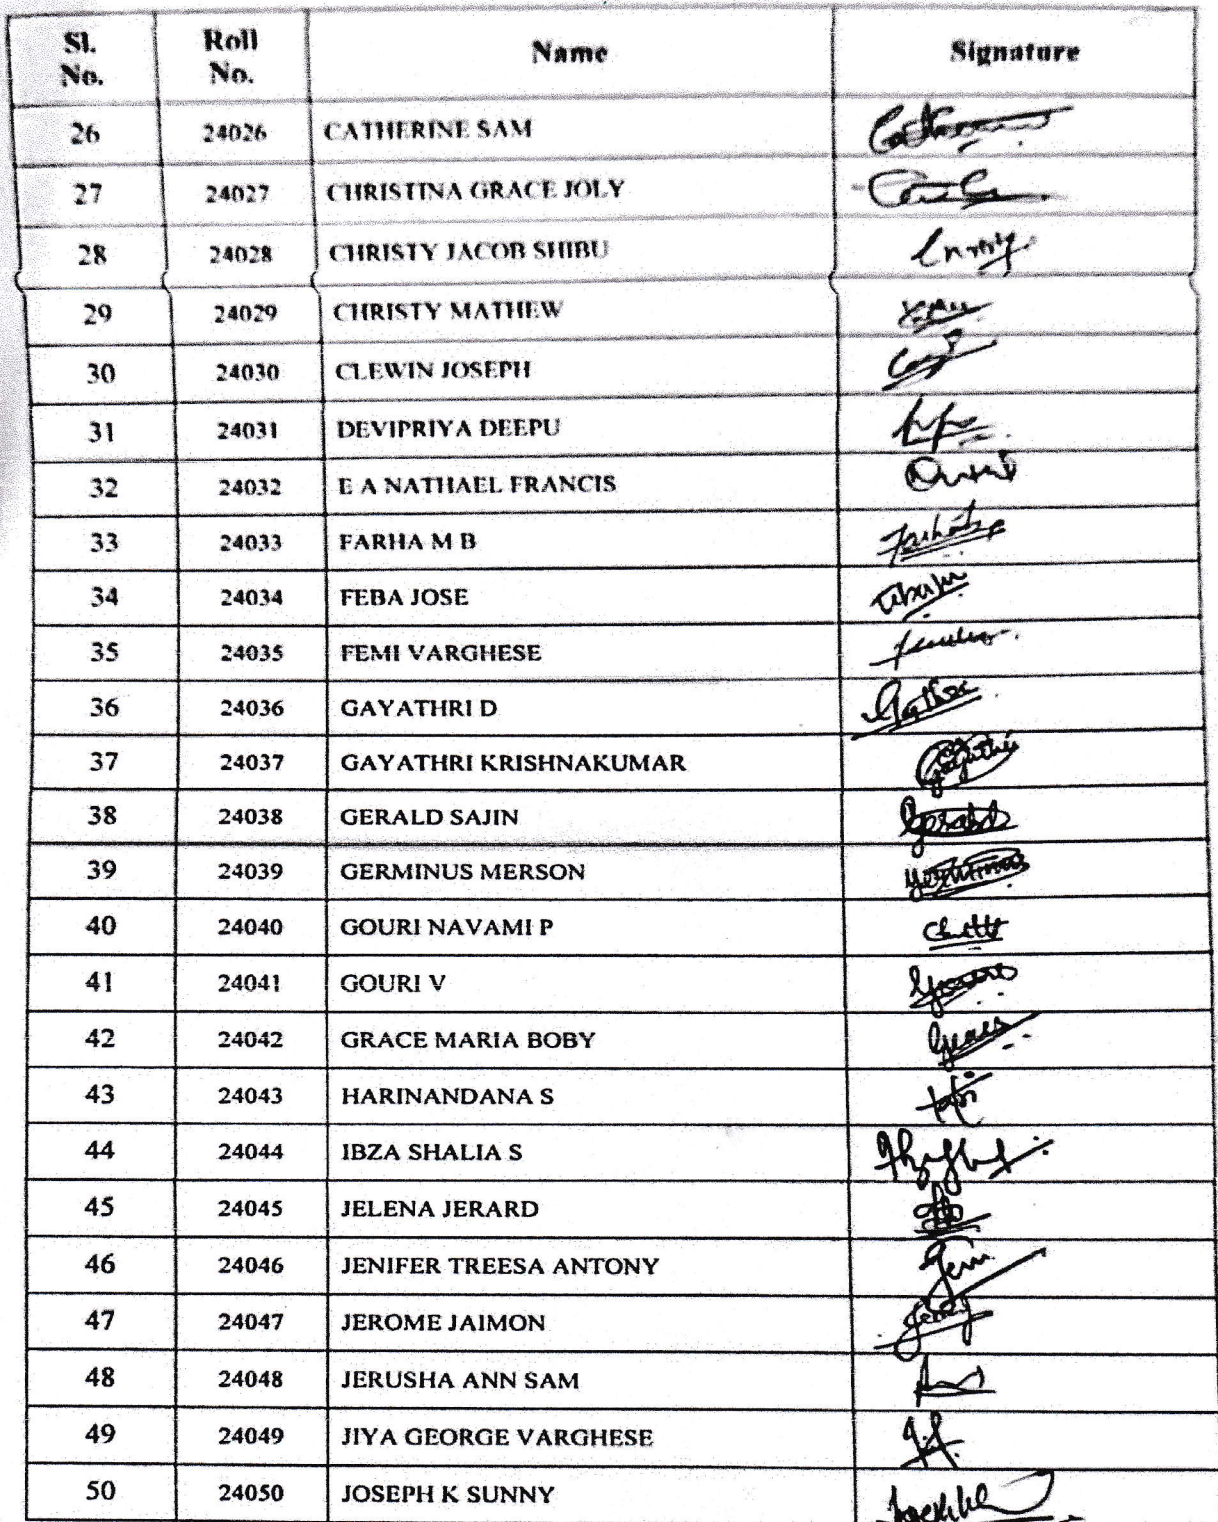 Sl. No. Roll No. Name Signature
26 24026 CATHERINE SAM
27 24027 CHRISTINA GRACE JOLY
28 24028 CHRISTY JACOB SHIBU
29 24029 CHRISTY MATHEW
30 24030 CLEWIN JOSEPH
31 24031 DEVIPRIYA DEEPU
32 24032 E A NATHAEL FRANCIS
33 24033 FARHA M B
34 24034 FEBA JOSE
35 24035 FEMI VARGHESE
36 24036 GAYATHRI D
37 24037 GAYATHRI KRISHNAKUMAR
38 24038 GERALD SAJIN
39 24039 GERMINUS MERSON
40 24040 GOURI NAVAMI P
41 24041 GOURI V
42 24042 GRACE MARIA BOBY
43 24043 HARINANDANA S
44 24044 IBZA SHALIA S
45 24045 JELENA JERARD
46 24046 JENIFER TREESA ANTONY
47 24047 JEROME JAIMON
48 24048 JERUSHA ANN SAM
49 24049 JIYA GEORGE VARGHESE
50 24050 JOSEPH K SUNNY